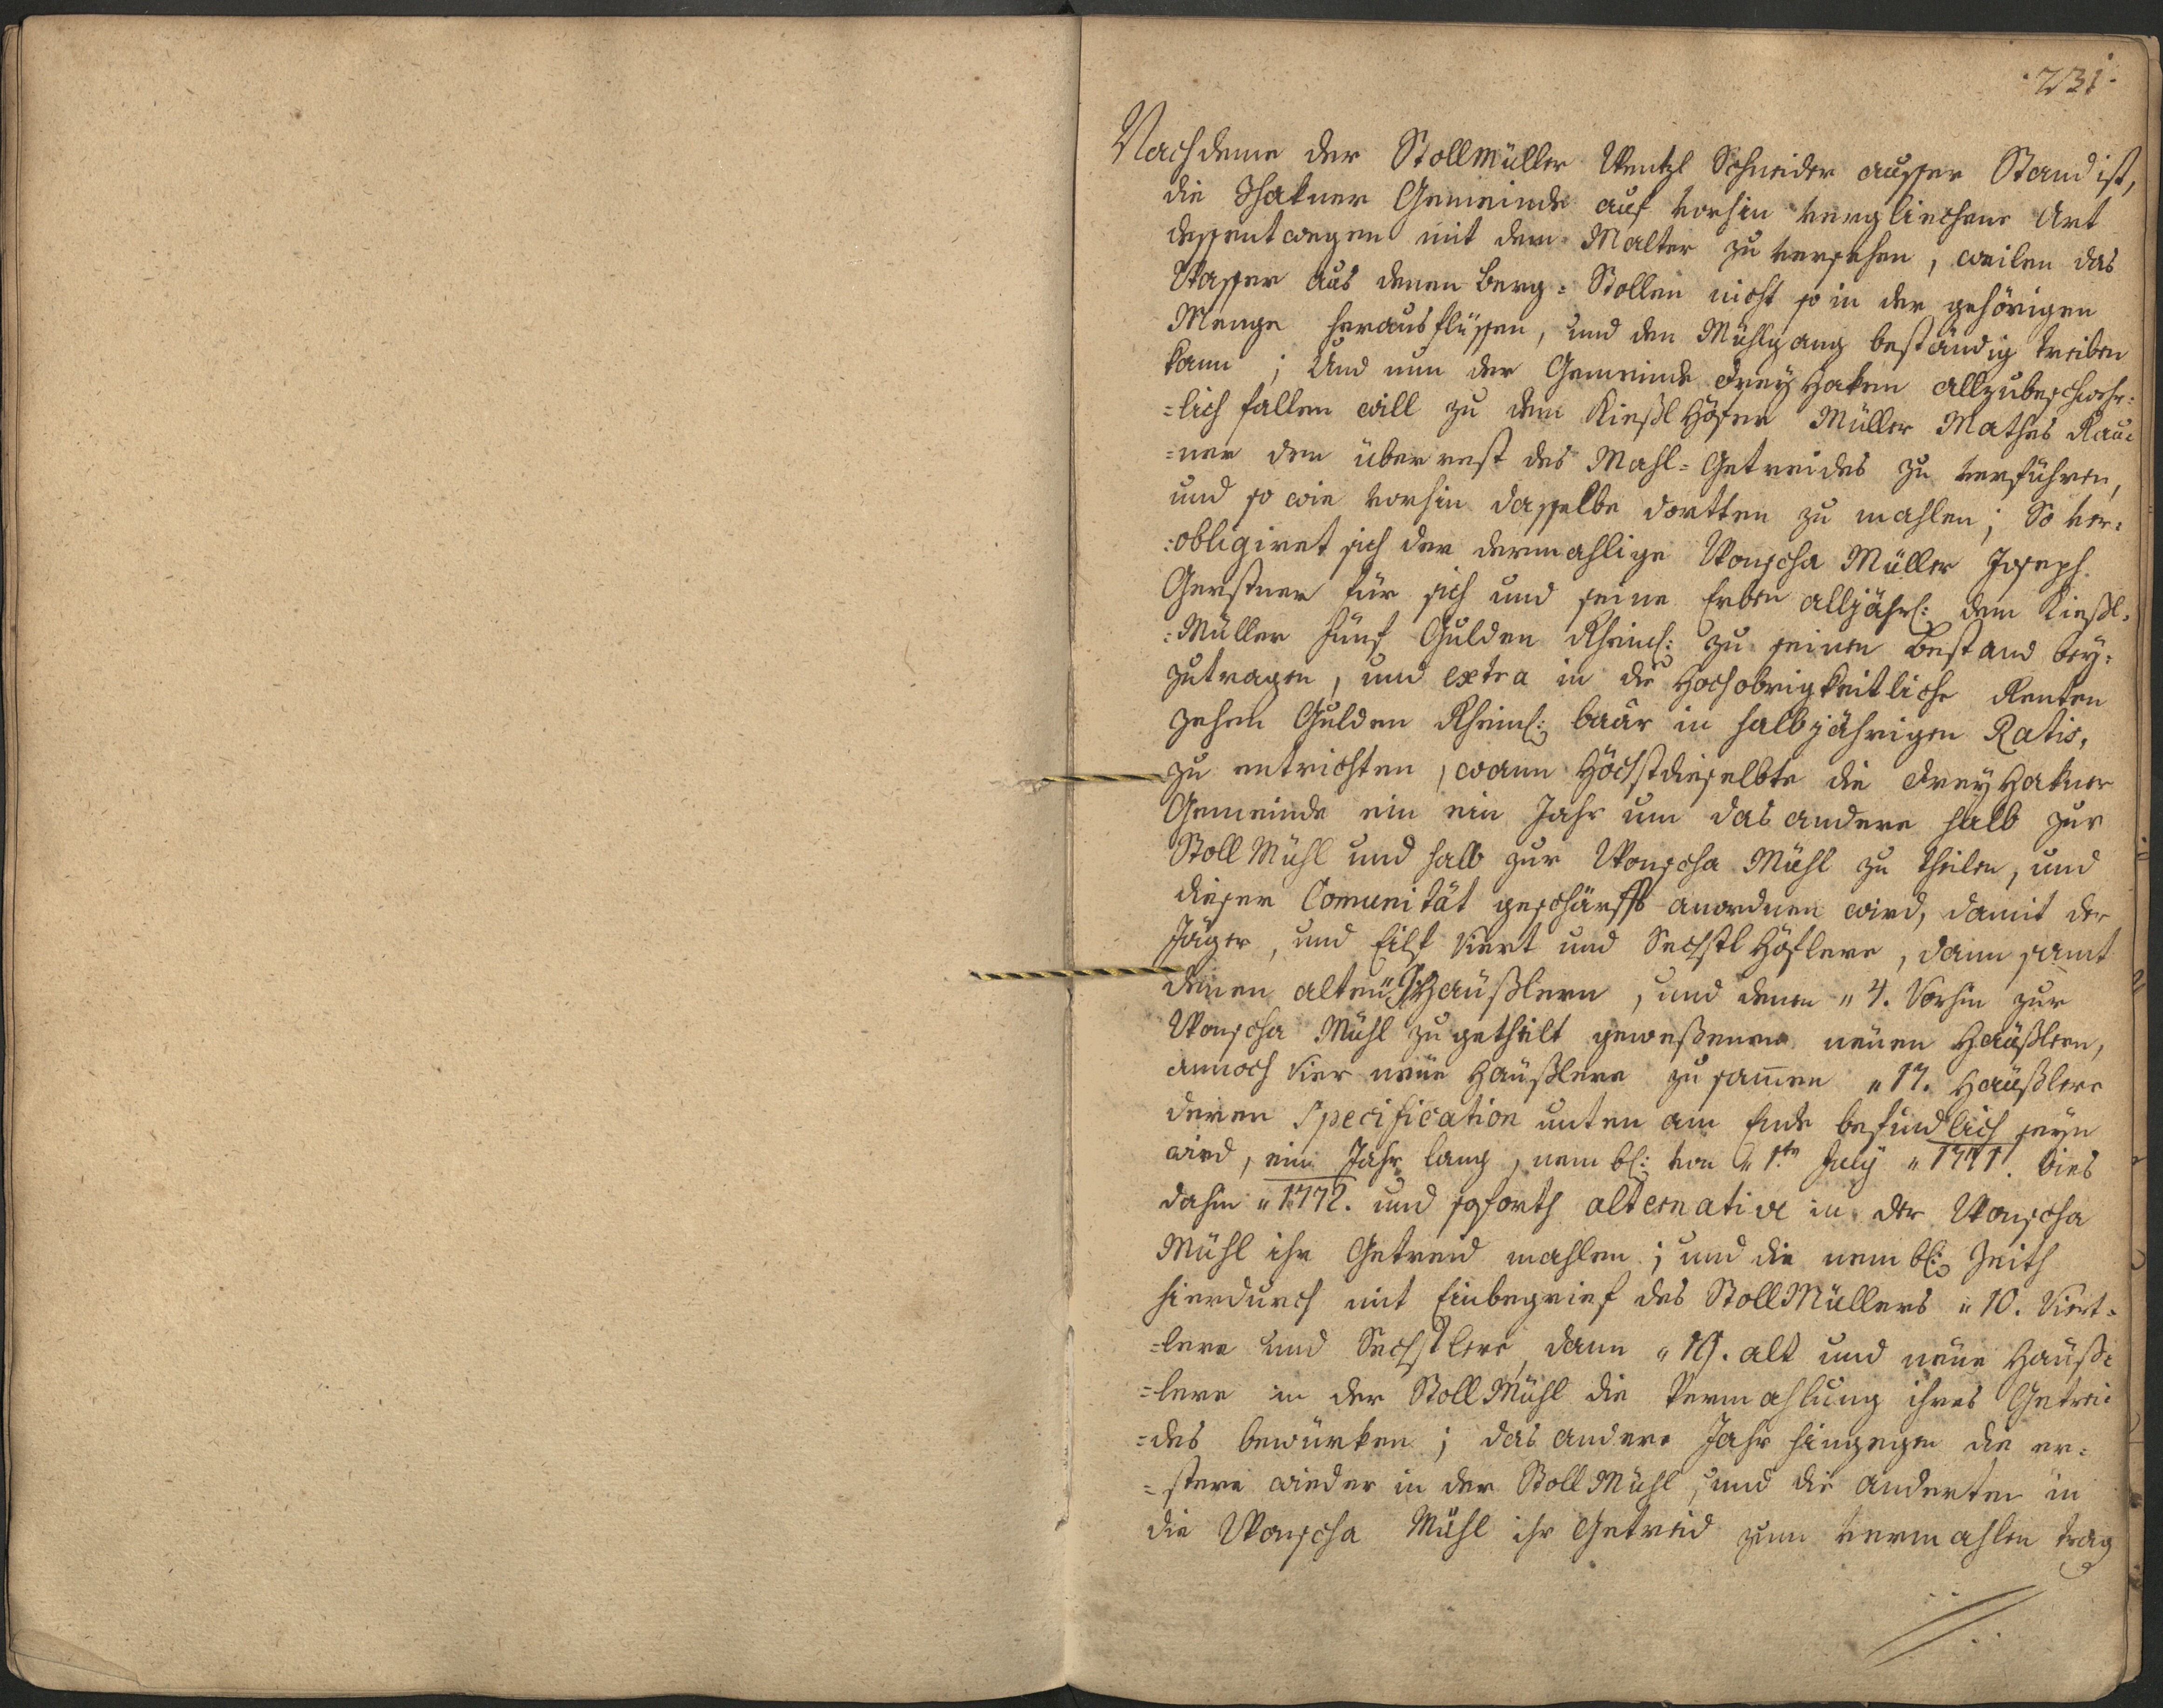 ·231·
Nachdeme der Stollmüller Wentzl Schneider ausser Stand ist,
die Thakner Gemeinde auf vorhin verglichene Art
dessentwegen mit dem Malter zu versehen, weilen das
Wasser aus denen Berg= Stollen nicht so in der gehörigen
Menge herausflüssen, und den Mühlgang beständig treiben
kann; Und nun der Gemeinde Dreyhaken allzubeschwehr=
=lich fallen will zu dem Kießlhöfer Müller Mathes Rau=
=ner den überrest des Mahl= Getreides zu verführen,
und so wie vorhin dasselbe dortten zu mahlen; So ver=
=obligiret sich der dermahlige Wonscha Müller Joseph
Gerstner für sich und seine Erben alljährl: dem Kießl=
=Müller fünf Gulden Rheinl: zu seinen Bestand bey=
zutragen, und extra in die Hochobrigkeitliche Renten
zehen Gulden Rheinl: baar in halbjährigen Ratis,
zu entrichten, wann Höchstdieselbte die Dreyhakner
Gemeinde ein ein Jahr um das andere halb zur
Stoll Mühl und halb zur Wonscha Mühl zu theilen, und
dieser Comunität geschärfft anordnen wird, damit der
Jäger, und Eilf Viert und Sechstl Höflere, dann samt
denen alten 9 Haüßlern, und denen " 4. Vorhin zur
Wonscha Mühl zugetheilt geweßenen neüen Haüßlern,
annoch Vier neüe Haüßlere zusam̅en " 17. Haüßlere
deren Specification unten am Ende befindlich seyn
wird, ein Jahr lang, nembl: von " 1ten July " 1771. bies
dahin " 1772. und soforth alternative in der Wonscha
Mühl ihr Getreid mahlen; und die nembl: Zeith
hierdurch mit Einbegrief des Stoll Müllers " 10. Viert=
=lere und Sechstlere, dann " 19. alt und neüe Haüß=
=lere in der Stoll Mühl die Vermahlung ihres Getrei=
=des bewürken; das andere Jahr hingegen die er=
=stere wieder in der Stoll Mühl, und die anderten in
die Wonscha Mühl ihr Getreid zum vermahlen trag